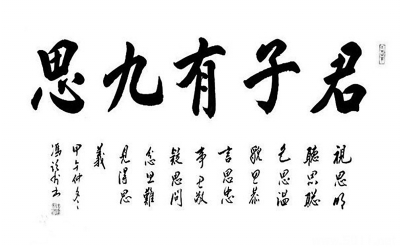 君子有九思
視思明
聽思聰
色思温
貌思恭
言思忠
事思敬
疑思問
忿思難
見得思
義
甲午仲冬